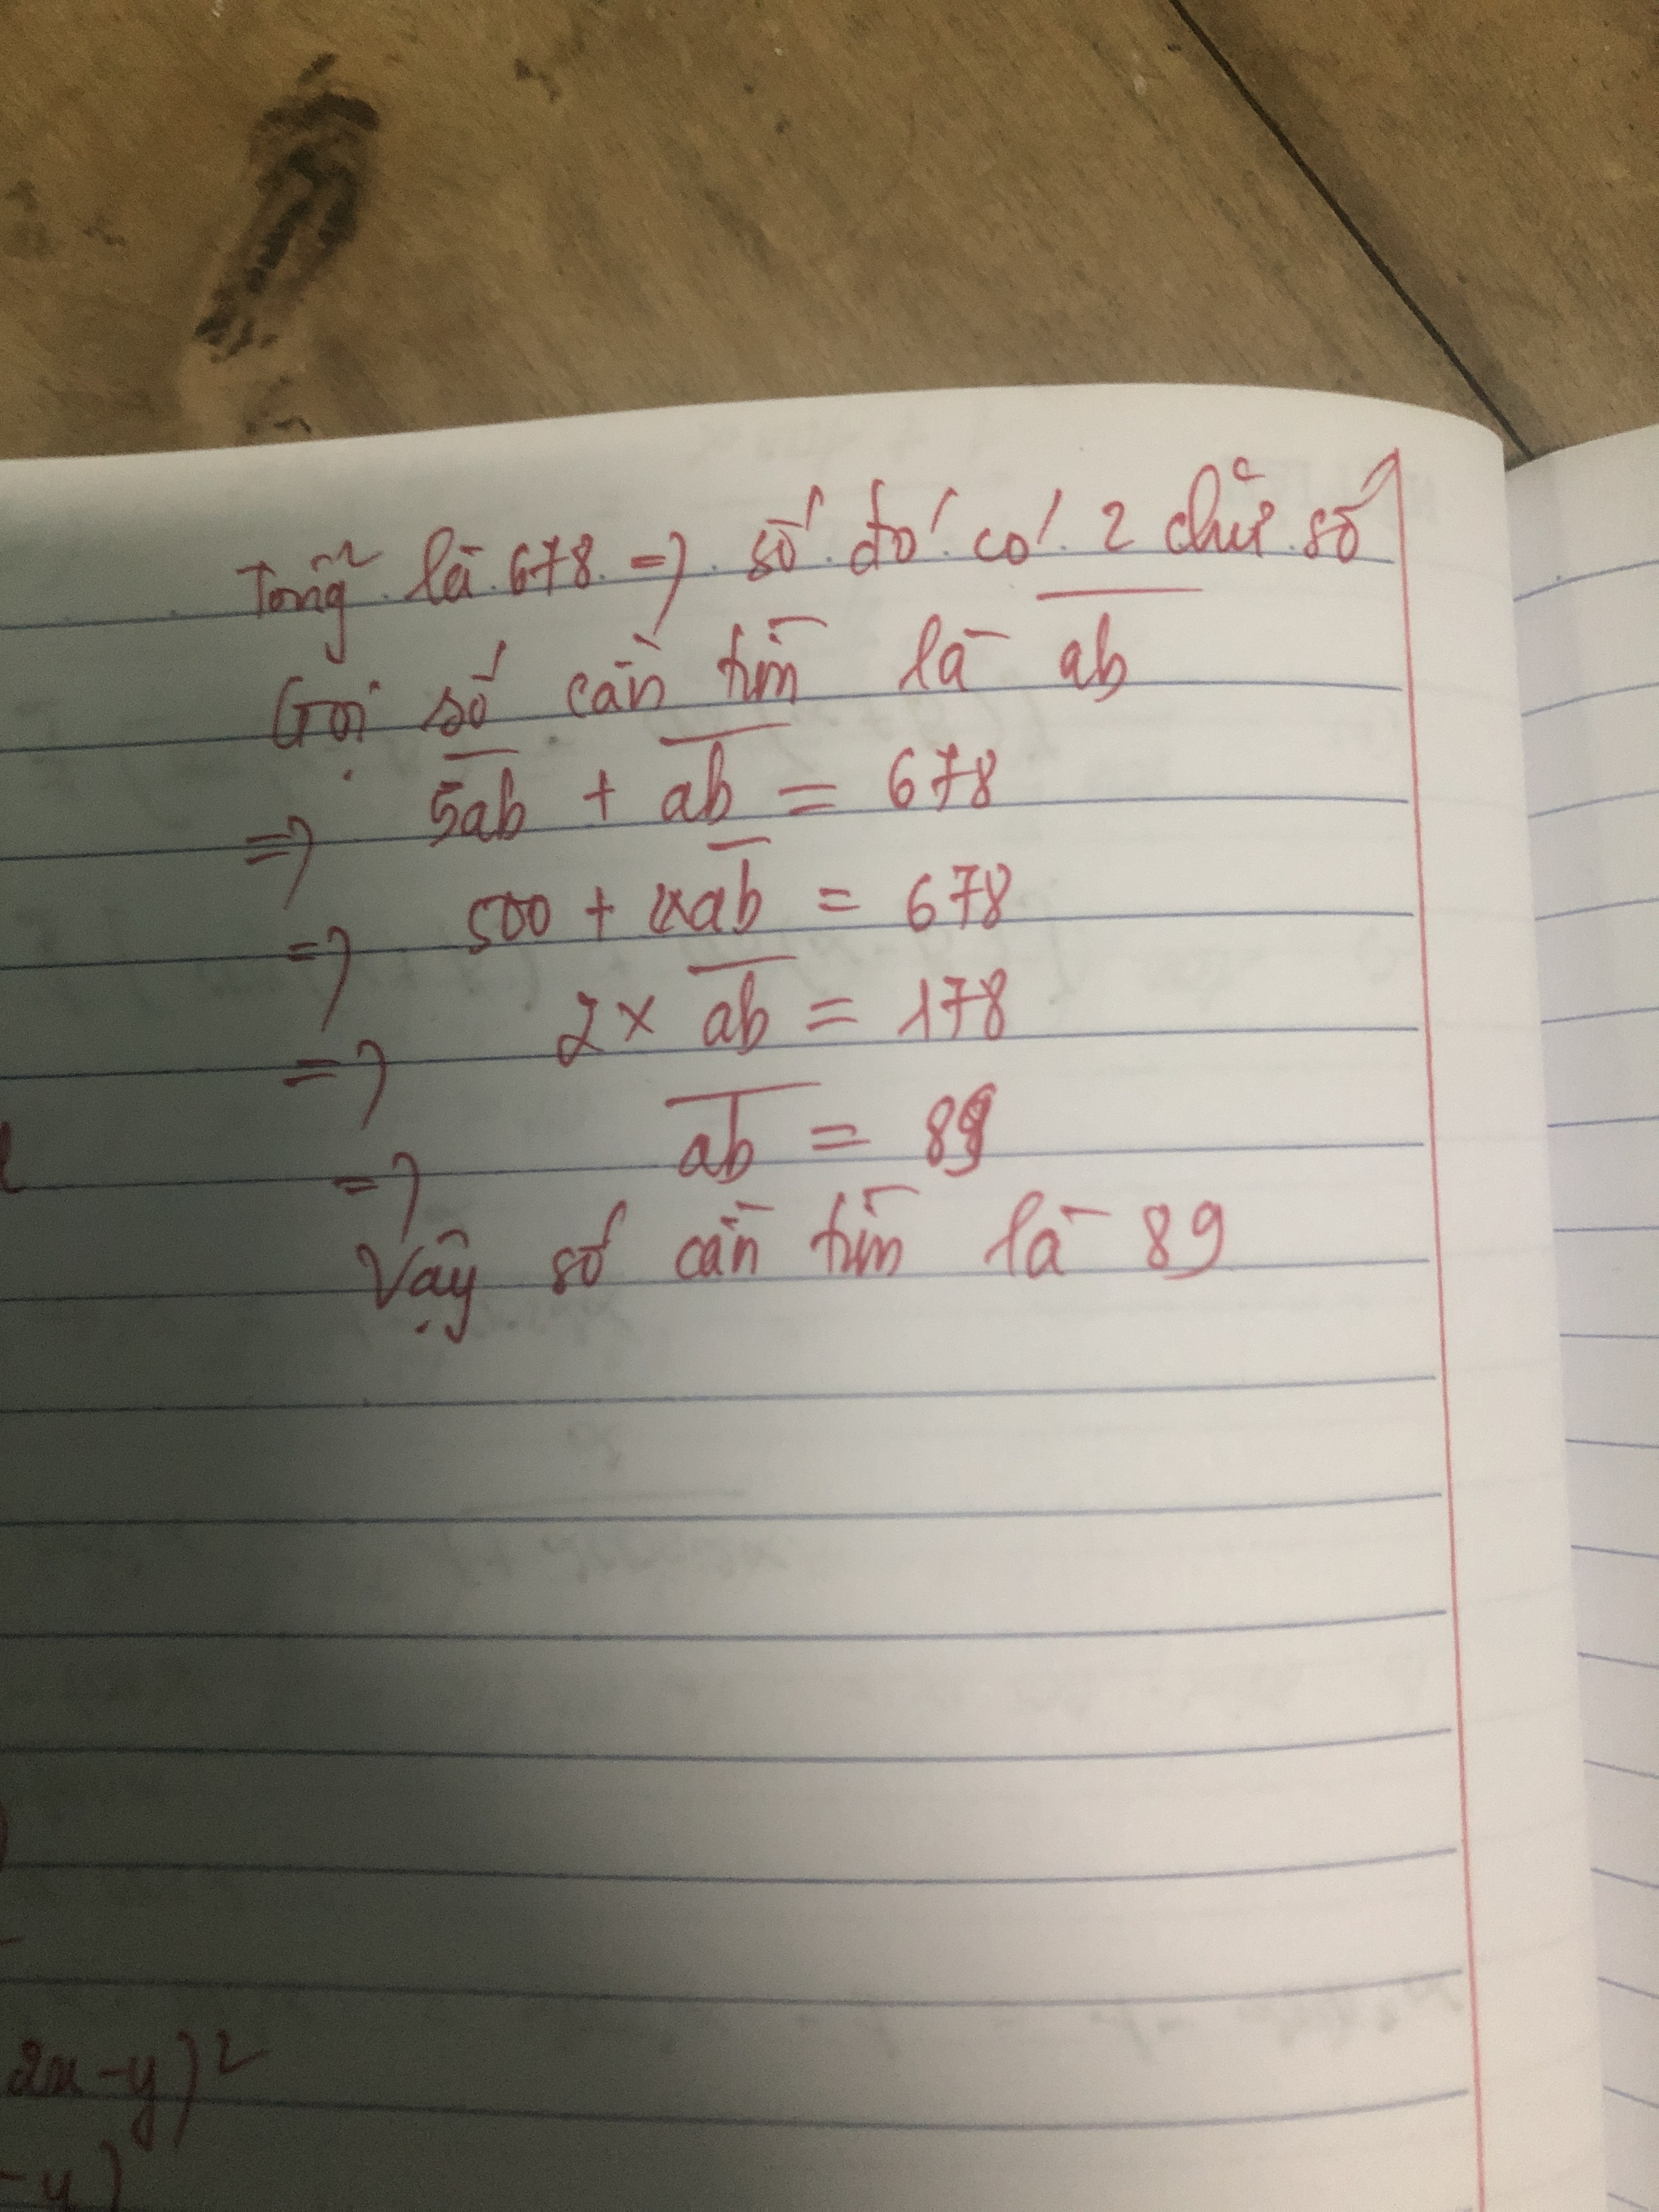 Tổng là 678 => số đó có 2 chữ số
Gọi số cần tìm là ab
=> 5ab + ab = 678
=> 500 + 2xab = 678
=> 2 x ab = 178
=> ab = 89
Vậy số cần tìm là 89
2x - y)²
- y)